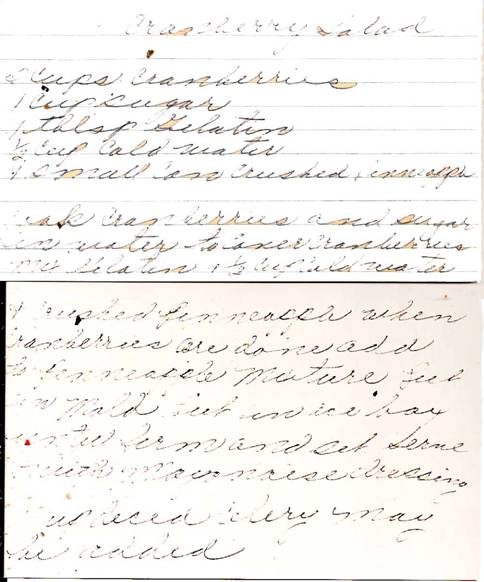 Cranberry Salad
2 Cups Cranberries
1 Cup Sugar
1 tblsp Gelatin
1/2 Cup Cold water
1 small Can Crushed pinneapple
Cranberries and sugar
in water to Cover Cranberries
Mix Gelatin & 1/2 Cup Cold water
& Crushed pinneapple when
Cranberries are done add
to pinneapple mixture Put
in Mold Put in ice box
until firm and set Serve
with Mayonnaise Dressing
Celery may
be added